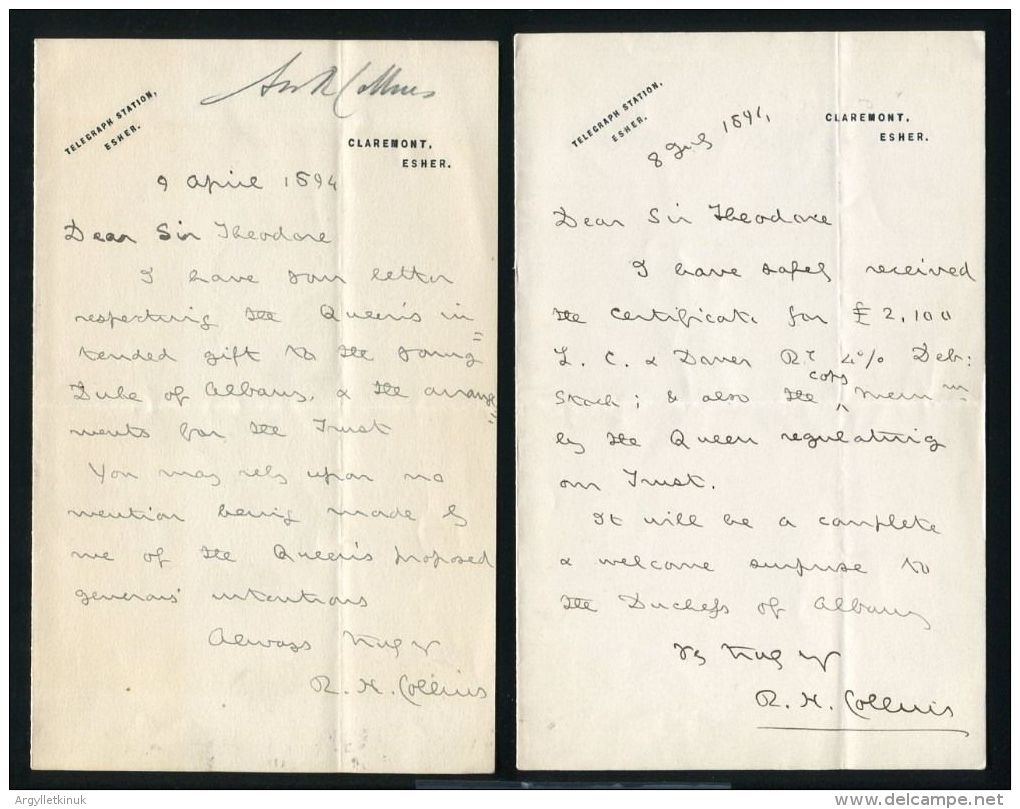 Sir R Collins
TELEGRAPH STATION,
ESHER.
CLAREMONT,
ESHER.
9 April 1894
Dear Sir Theodore
I have your letter
respecting the Queen's in=
tended gift to the young
Duke of Albany, & the arrange=
ments for the Trust
You may rely upon no
mention being made by
me of the Queen's proposed
generous intentions
Always truly yr
R. H. Collins
TELEGRAPH STATION,
ESHER.
CLAREMONT,
ESHER.
8 July 1894,
Dear Sir Theodore
I have safely received
the certificate for £2,100
L. C. & Dover Ry 4% Deb:
Stock; & also the copy Mem
by the Queen regulating
our Trust.
It will be a complete
& welcome surprise to
the Duchess of Albany
Yrs truly
R. H. Collins
Argylletkinuk
delcampe.net